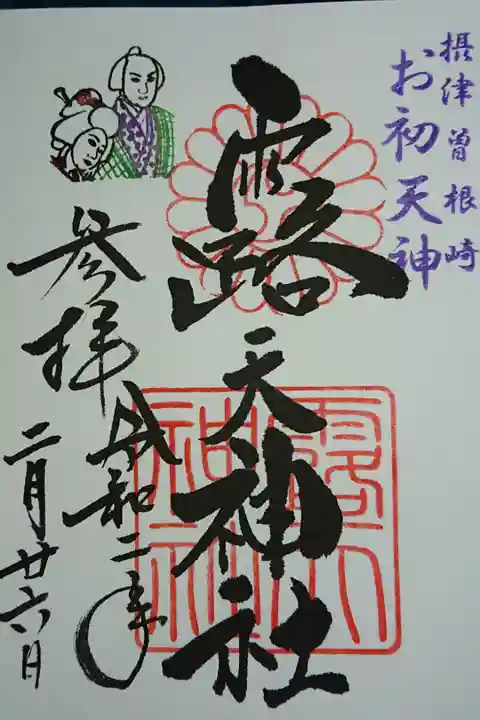 摂津曽根崎
お初天神
露天神社
参拝
令和二年
二月廿六日